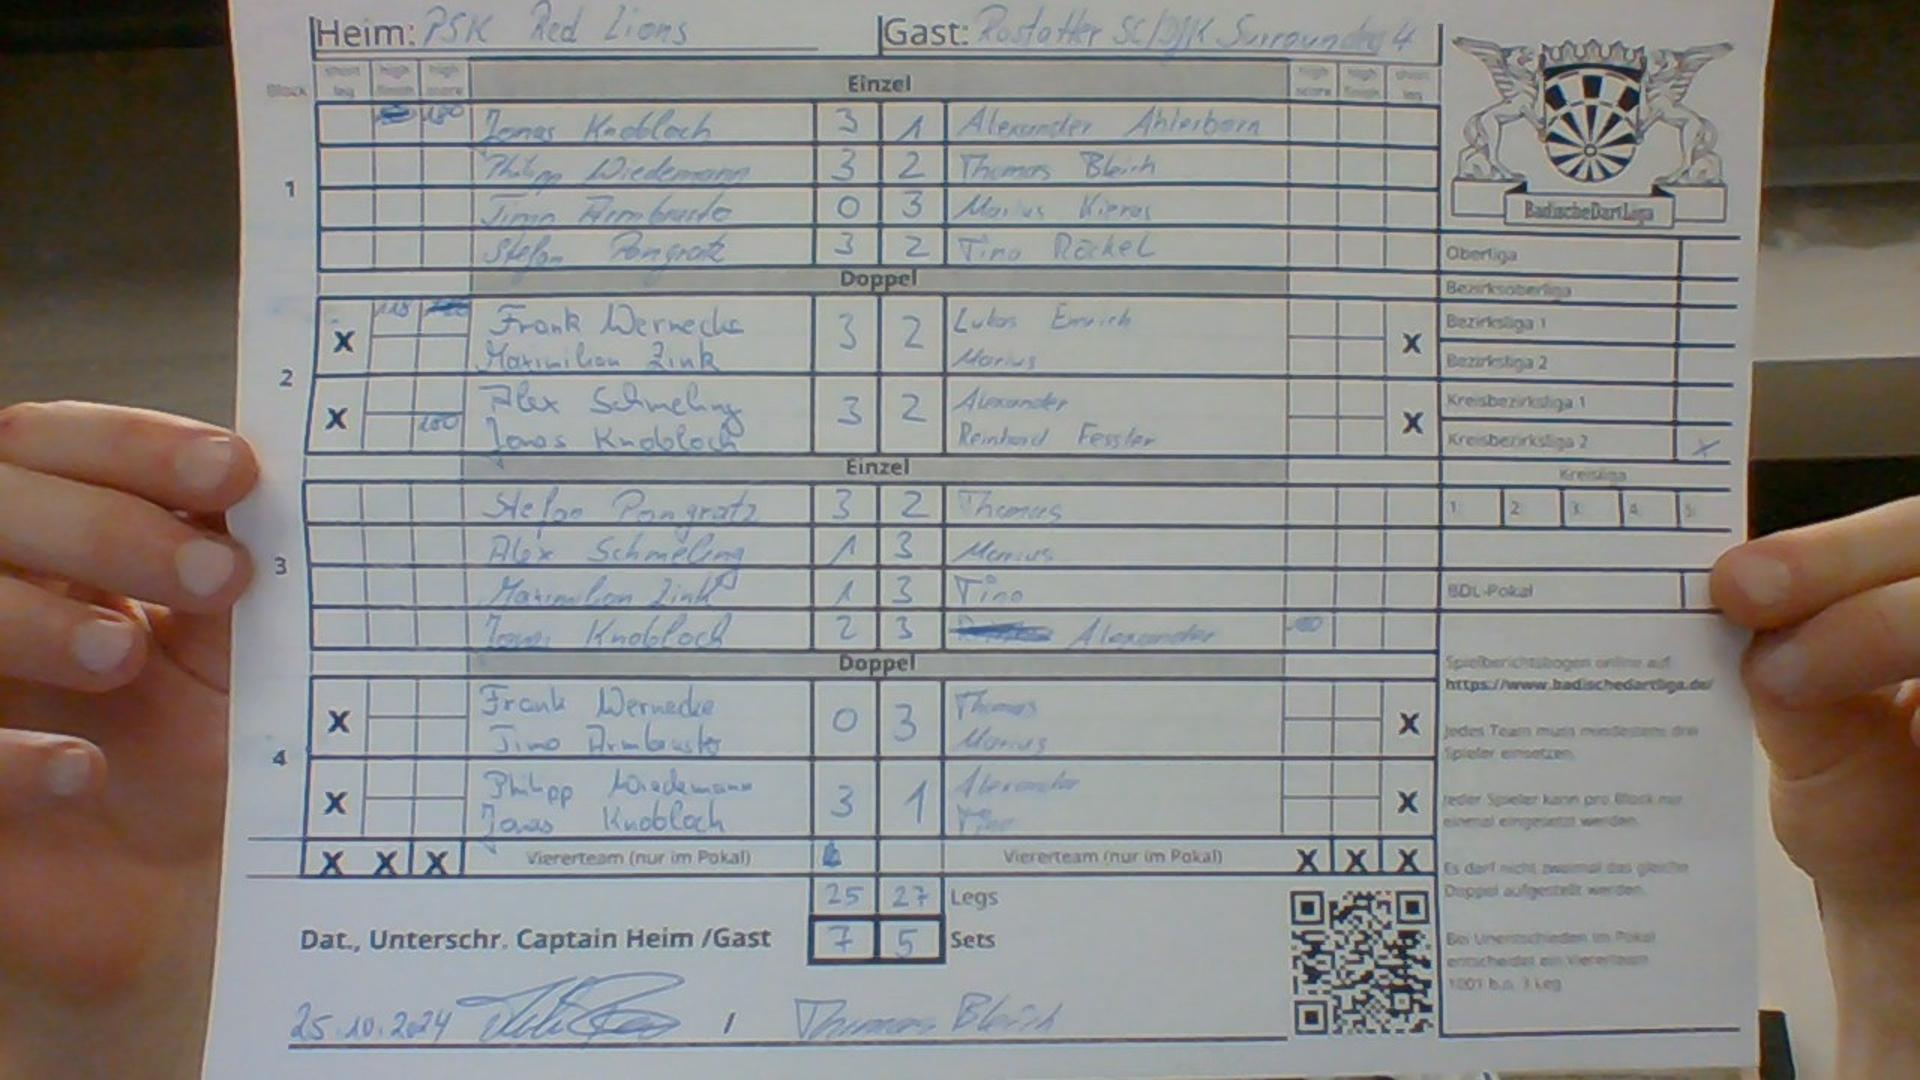 Heim: PSK Red Lions Gast: Rastatter SC/DJK Surrounding 4
Block short leg high finish high score Einzel high score high finish short leg
180 Jonas Knobloch 3 1 Alexander Ahlerborn
Philipp Wiedemann 3 2 Thomas Bleich
1
Timo Armbruster 0 3 Marius Kieras
Stefan Pongratz 3 2 Tino Räckel
Doppel
118 Frank Wernecke 3 2 Lukas Emrich
X Maximilian Zink Marius X
2
Alex Schmeling 3 2 Alexander
X 180 Jonas Knobloch Reinhard Fessler X
Einzel
Stefan Pongratz 3 2 Thomas
Alex Schmeling 1 3 Marius
3
Maximilian Zink 1 3 Tino
Jonas Knobloch 2 3 Alexander
Doppel
X Frank Wernecke 0 3 Thomas X
Timo Armbruster Marius
4
X Philipp Wiedemann 3 1 Alexander X
Jonas Knobloch Tino
X X X Viererteam (nur im Pokal) Viererteam (nur im Pokal) X X X
25 27 Legs
Dat., Unterschr. Captain Heim /Gast 7 5 Sets
25.10.2024 / Thomas Bleich
BadischeDartLiga
Oberliga
Bezirksoberliga
Bezirksliga 1
Bezirksliga 2
Kreisbezirksliga 1
Kreisbezirksliga 2 X
Kreisliga
1: 2: 3: 4: 5:
BDL-Pokal
Spielberichtsbogen online auf
https://www.badischedartliga.de/
Jedes Team muss mindestens drei
Spieler einsetzen.
Jeder Spieler kann pro Block nur
einmal eingesetzt werden.
Es darf nicht zweimal das gleiche
Doppel aufgestellt werden.
Bei Unentschieden im Pokal
entscheidet ein Viererteam
1001 b.o. 1 Leg